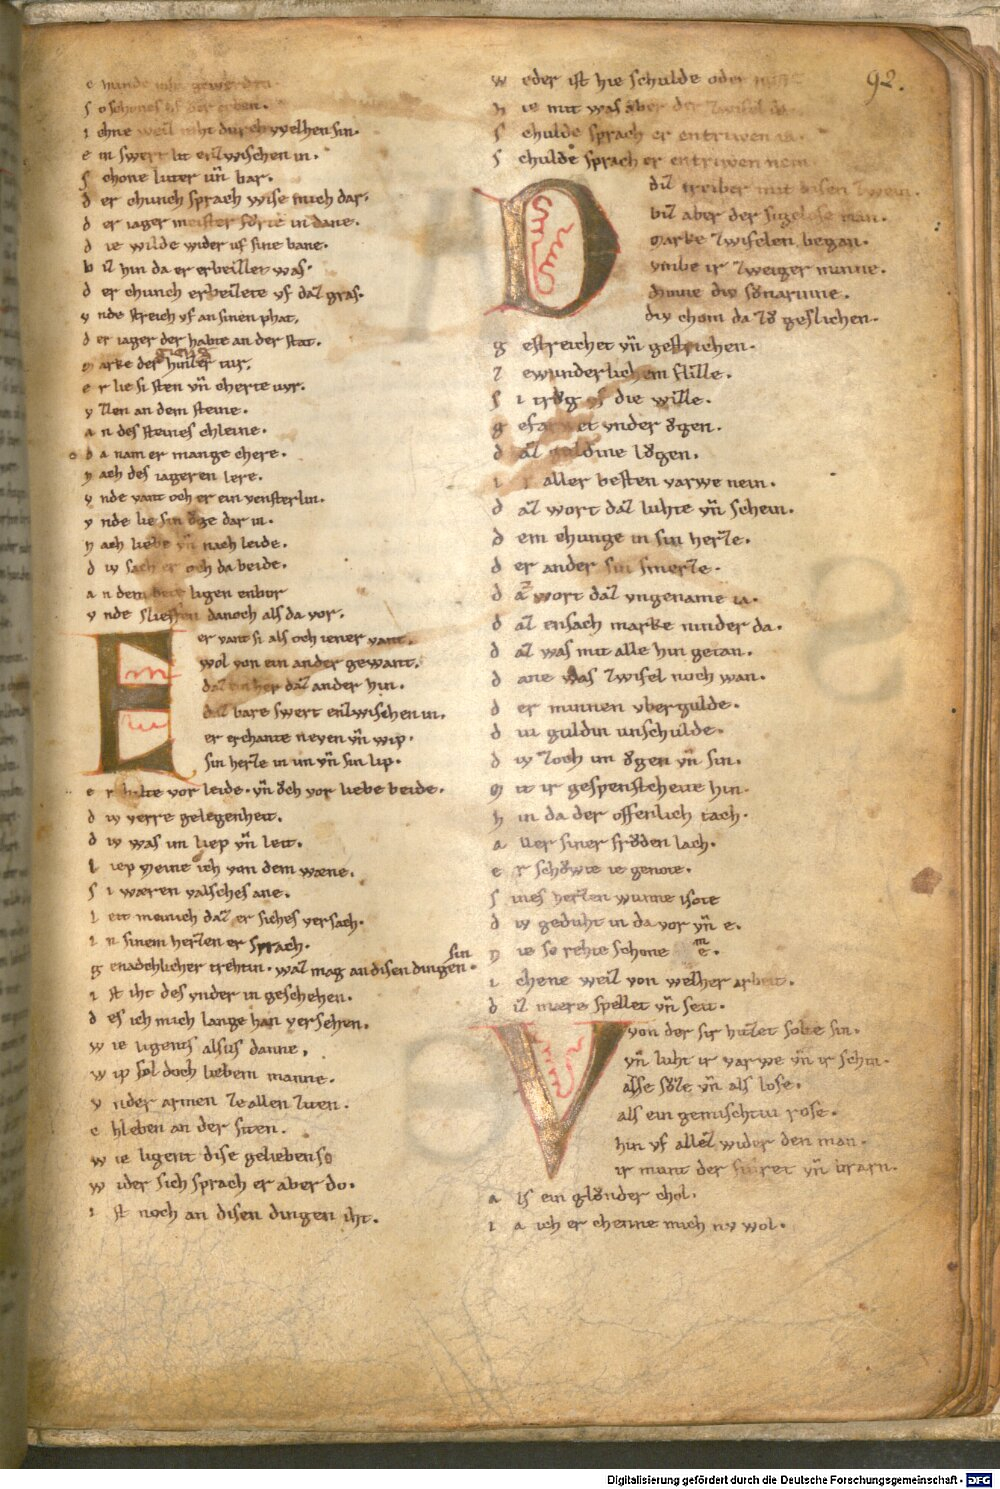 e nunde nie gewerden
s o schones vs der erben.
i chne weil niht durch welhen sin.
e in swert lit enzwischen in.
s chone luter vn̄ bar.
d er chunch sprach wise mich dar.
d er iager meister fůrte in dane.
d ie wilde wider vf sine bane.
b iz hin da er erbeizzet was.
d er chunch erbeizete vf daz gras.
v nde streich vf an sinen phat.
d er iager der habte an der stat.
m arke der hinder tur.
gienc ze
e r lie si sten vn̄ cherte vur.
v zzen an dem steine.
a n des steines chleine.
d a nam er mange chere.
n ach des iageren lere.
v nde vant och er ein vensterlin.
v nde lie sin ŏge dar in.
n ach liebe vn̄ nach leide.
d iv sach er och da beide.
a n dem bette ligen enbor
v nde slieffen danoch als da vor.
E er vant si als och iener vant.
wol von ein ander gewant.
daz ein her daz ander hin.
daz bare swert enzwischen in.
er erchante neven vn̄ wip.
sin herze in im vn̄ sin lip.
e r halte vor leide. vn̄ ŏch vor liebe beide.
d iv verre gelegenheit.
d iv was im liep vn̄ leit.
l iep meine ich von dem wæne.
s i wæren valsches ane.
l eit meinich daz er siches versach.
i n sinem herzen er sprach.
g enadchlicher trehtin. waz mag an disen dingen sin.
i st iht des vnder in geschehen.
d es ich mich lange han versehen.
w ie ligents alsus danne.
w ip sol doch liebem manne.
v nder armen ze allen ziten.
c hleben an der siten.
w ie ligent dise gelieben so
w ider sich sprach er aber do.
i st noch an disen dingen iht.
92.
w eder ist hie schulde oder niht
h ie mit was aber der zwifel da
s chulde sprach er entriwen ia.
s chulde sprach er entriwen nein
D diz treiber mit disen zwein.
biz aber der sigelose man.
marke zwiuelen began.
vmbe ir zweiger minne.
diu minne diu sůnarinne.
div chom da zů geslichen.
g estreichet vn̄ gestrichen.
z ewunderlichem flize.
s i trůg vf die wize.
g efarwet vnder ŏgen.
d az guldine lŏgen.
i r aller besten varwe nein.
d az wort daz luhte vn̄ schein.
d em chunge in sin herze.
d er ander sin smerze.
d az wort daz vngename ia.
d az ensach marke ninder da.
d az was mit alle hin getan.
d ane was zwifel noch wan.
d er minnen vbergulde.
d iu guldin unschulde.
d iv zoch im ŏgen vn̄ sin.
m it ir gespensteheite hin.
h in da der offenlich tach.
a ller siner frŏden lach.
e r schŏwte ie genote.
s ines herzen wunne isote
d iv geduht in da vor vn̄ e.
n ie so rehte schone m e.
i chene weiz von welher arbeit.
d iz mære spellet vn̄ seit.
V von der sis hitzet solte sin.
vn̄ luht ir varwe vn̄ ir schin.
alse sůze vn̄ als lose.
als ein gemischtiu rose.
hin vf allez wider den man.
ir munt der fiuret vn̄ bran.
a ls ein glůnder chol.
i a ich er chenne mich nv wol.
Digitalisierung gefördert durch die Deutsche Forschungsgemeinschaft - DFG